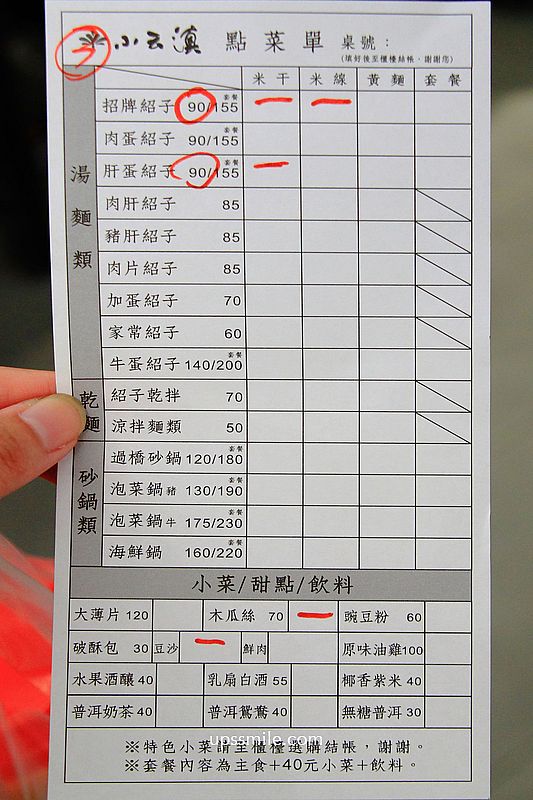 7 小云滇 點菜單 桌號：
(填好後至櫃檯結帳，謝謝您)
米干 米線 黃麵 套餐
湯麵類
招牌紹子 90/套餐155
肉蛋紹子 90/套餐155
肝蛋紹子 90/套餐155
肉肝紹子 85
豬肝紹子 85
肉片紹子 85
加蛋紹子 70
家常紹子 60
牛蛋紹子 140/套餐200
乾麵
紹子乾拌 70
涼拌麵類 50
砂鍋類
過橋砂鍋 120/套餐180
泡菜鍋豬 130/套餐190
泡菜鍋牛 175/套餐230
海鮮鍋 160/套餐220
小菜/甜點/飲料
大薄片 120 木瓜絲 70 豌豆粉 60
破酥包 30 豆沙 鮮肉 原味油雞100
水果酒釀 40 乳扇白酒 55 椰香紫米 40
普洱奶茶 40 普洱鴛鴦 40 無糖普洱 30
upssmile.com
※特色小菜請至櫃檯選購結帳，謝謝。
※套餐內容為主食+40元小菜+飲料。